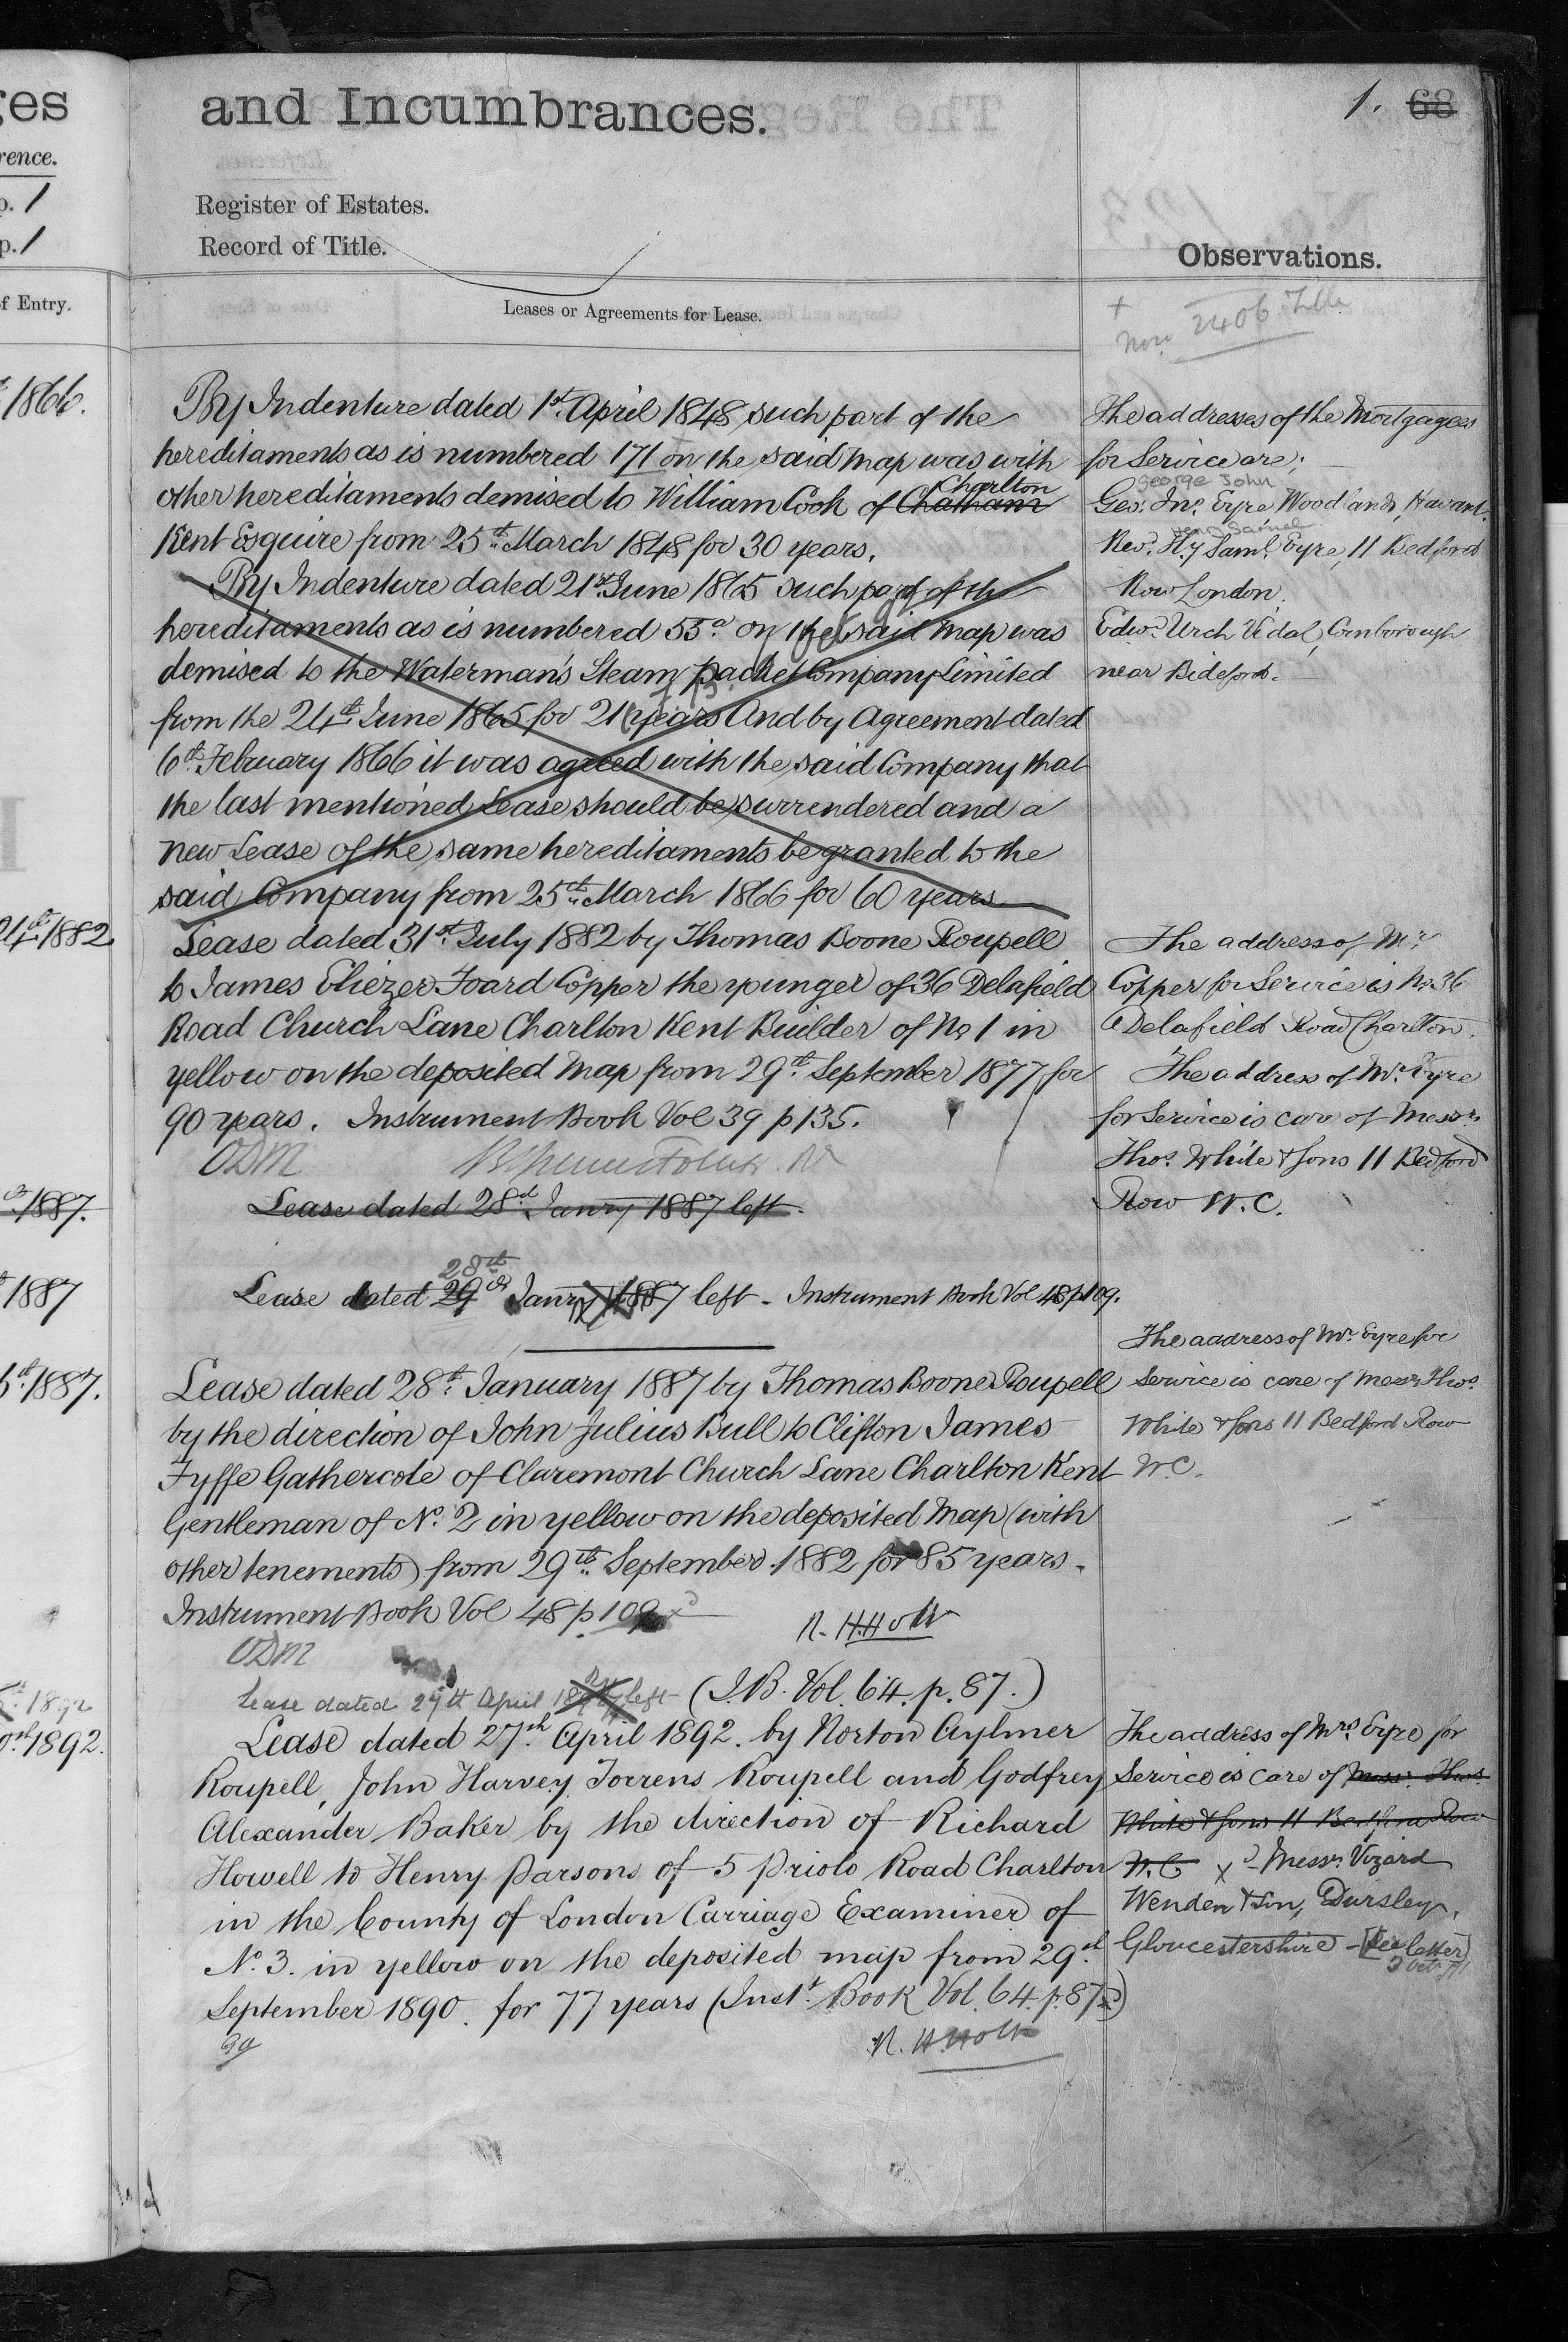 ges
and Incumbrances.
1. 68
rence.
p. 1
Register of Estates.
p. 1
Record of Title.
Observations.
of Entry.
Leases or Agreements for Lease.
+
Now 2406 Title
1866.
By Indenture dated 1st April 1848 such part of the
hereditaments as is numbered 171 on the said map was with
Charlton
other hereditaments demised to William Cook of Chatham
Kent Esquire from 25th March 1848 for 30 years.
By Indenture dated 21st June 1865 such part of the
hereditaments as is numbered 55a on the said map was
demised to the Waterman's Steam Packet Company Limited
from the 24th June 1865 for 21 years And by Agreement dated
6th February 1866 it was agreed with the said Company that
the last mentioned Lease should be surrendered and a
new Lease of the same hereditaments be granted to the
said Company from 25th March 1866 for 60 years
The addresses of the Mortgagees
for Service are;
George John
Geo. Jno. Eyre Woodlands, Havant.
Henry Samuel
Revd. Hy Saml. Eyre, 11 Bedford
Row London.
Edwd. Urch Vidal, Cornborough
near Bideford.
1882
Lease dated 31st July 1882 by Thomas Boone Roupell
to James Eliezer Foard Copper the younger of 36 Delafield
Road Church Lane Charlton Kent Builder of No 1 in
yellow on the deposited Map from 29th September 1877 for
90 years. Instrument Book Vol 39 p 135.
ODM
The address of Mr
Copper for Service is No 36
Delafield Road Charlton.
The address of Mr. Eyre
for Service is care of Messrs.
Thos. White & Sons 11 Bedford
Row W.C.
1887.
Lease dated 28th Janry 1887 left.
1887
28th
Lease dated 29th Janry 1887 left - Instrument Book Vol 48 p 109.
1887.
Lease dated 28th January 1887 by Thomas Boone Roupell
by the direction of John Julius Bull to Clifton James
Fyffe Gathercole of Claremont Church Lane Charlton Kent
Gentleman of No. 2 in yellow on the deposited Map (with
other tenements) from 29th September 1882 for 85 years.
Instrument Book Vol 48 p 109
R. H. Holt
ODM
The address of Mr. Eyre for
Service is care of Messrs Thos.
White & Sons 11 Bedford Row
W.C.
1892
Lease dated 27th April 1892 left (I.B. Vol. 64. p. 87.)
1892.
Lease dated 27th April 1892. by Norton Aylmer
Roupell, John Harvey Torrens Roupell and Godfrey
Alexander Baker by the direction of Richard
Howell to Henry Parsons of 5 Priolo Road Charlton
in the County of London Carriage Examiner of
No. 3. in yellow on the deposited map from 29th
September 1890. for 77 years (Inst. Book Vol. 64. p. 87)
R. H. Holt
The address of Mrs Eyre for
Service is care of Messrs. Thos.
White & Sons 11 Bedford Row
W.C x Messrs. Vizard
Wenden & Son, Dursley,
Gloucestershire - [See letter
3 Oct